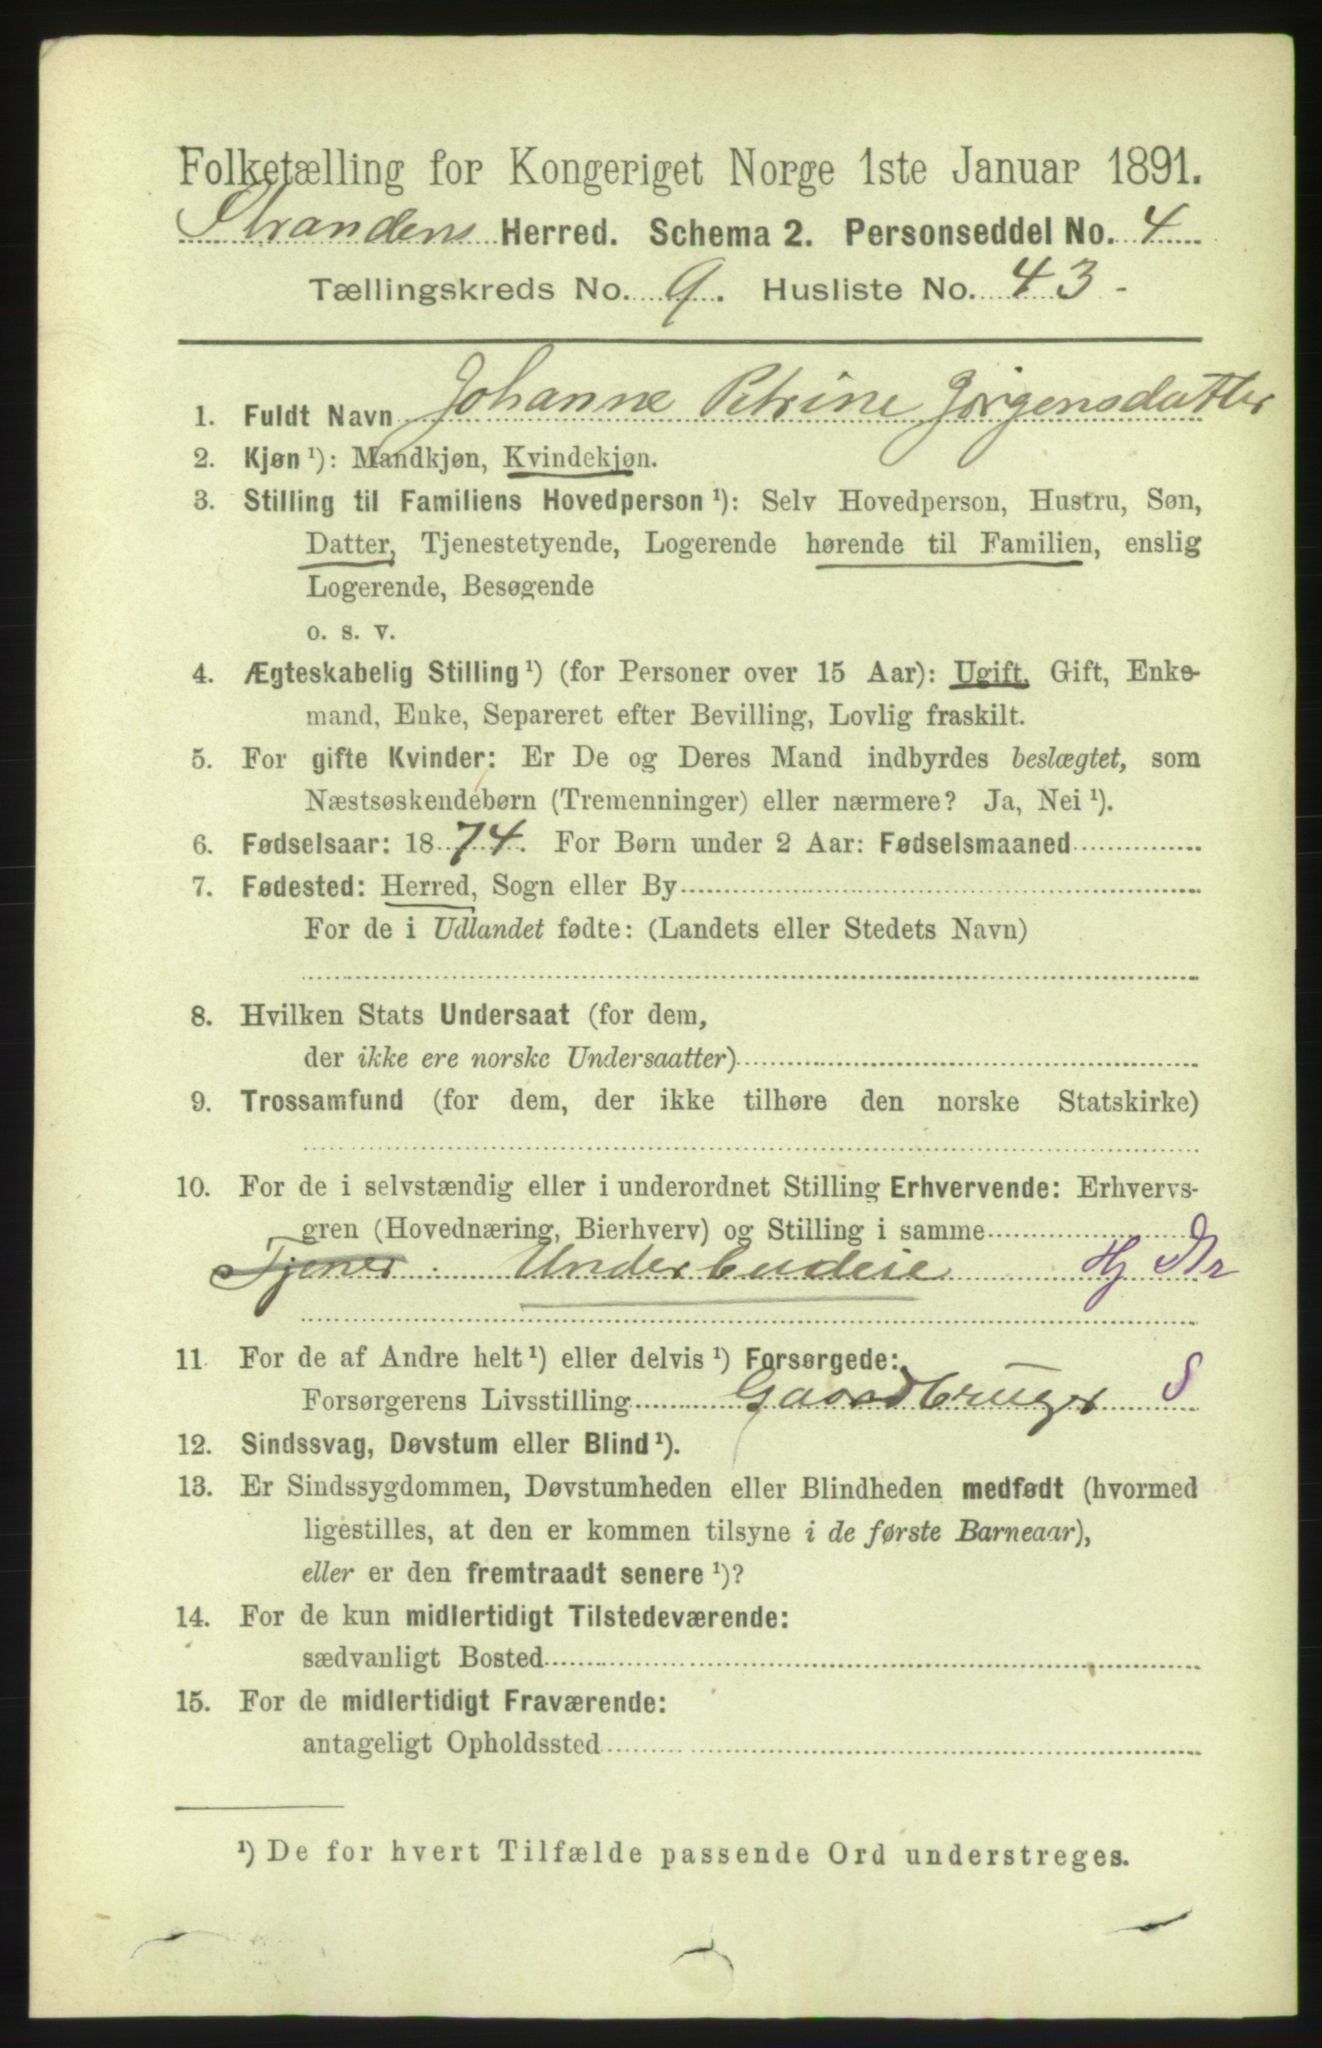 Folketælling for Kongeriget Norge 1ste Januar 1891.
Strandens Herred. Schema 2. Personseddel No. 4
Tællingskreds No. 9. Husliste No. 43 -
1. Fuldt Navn Johanne Petrine Jørgensdatter
2. Kjøn ¹): Mandkjøn, Kvindekjøn.
3. Stilling til Familiens Hovedperson ¹): Selv Hovedperson, Hustru, Søn,
Datter, Tjenestetyende, Logerende hørende til Familien, enslig
Logerende, Besøgende
o. s. v.
4. Ægteskabelig Stilling ¹) (for Personer over 15 Aar): Ugift, Gift, Enke-
mand, Enke, Separeret efter Bevilling, Lovlig fraskilt.
5. For gifte Kvinder: Er De og Deres Mand indbyrdes beslægtet, som
Næstsøskendebørn (Tremenninger) eller nærmere? Ja, Nei ¹).
6. Fødselsaar: 1874. For Børn under 2 Aar: Fødselsmaaned
7. Fødested: Herred, Sogn eller By
For de i Udlandet fødte: (Landets eller Stedets Navn)
8. Hvilken Stats Undersaat (for dem,
der ikke ere norske Undersaatter)
9. Trossamfund (for dem, der ikke tilhøre den norske Statskirke)
10. For de i selvstændig eller i underordnet Stilling Erhvervende: Erhvervs-
gren (Hovednæring, Bierhverv) og Stilling i samme
Tjener. Underbudeie Hj
11 For de af Andre helt ¹) eller delvis ¹) Forsørgede:
Forsørgerens Livsstilling Gaardbruger S
12. Sindssvag, Døvstum eller Blind ¹).
13. Er Sindssygdommen, Døvstumheden eller Blindheden medfødt (hvormed
ligestilles, at den er kommen tilsyne i de første Barneaar),
eller er den fremtraadt senere ¹)?
14. For de kun midlertidigt Tilstedeværende:
sædvanligt Bosted
15. For de midlertidigt Fraværende:
antageligt Opholdssted
¹) De for hvert Tilfælde passende Ord understreges.